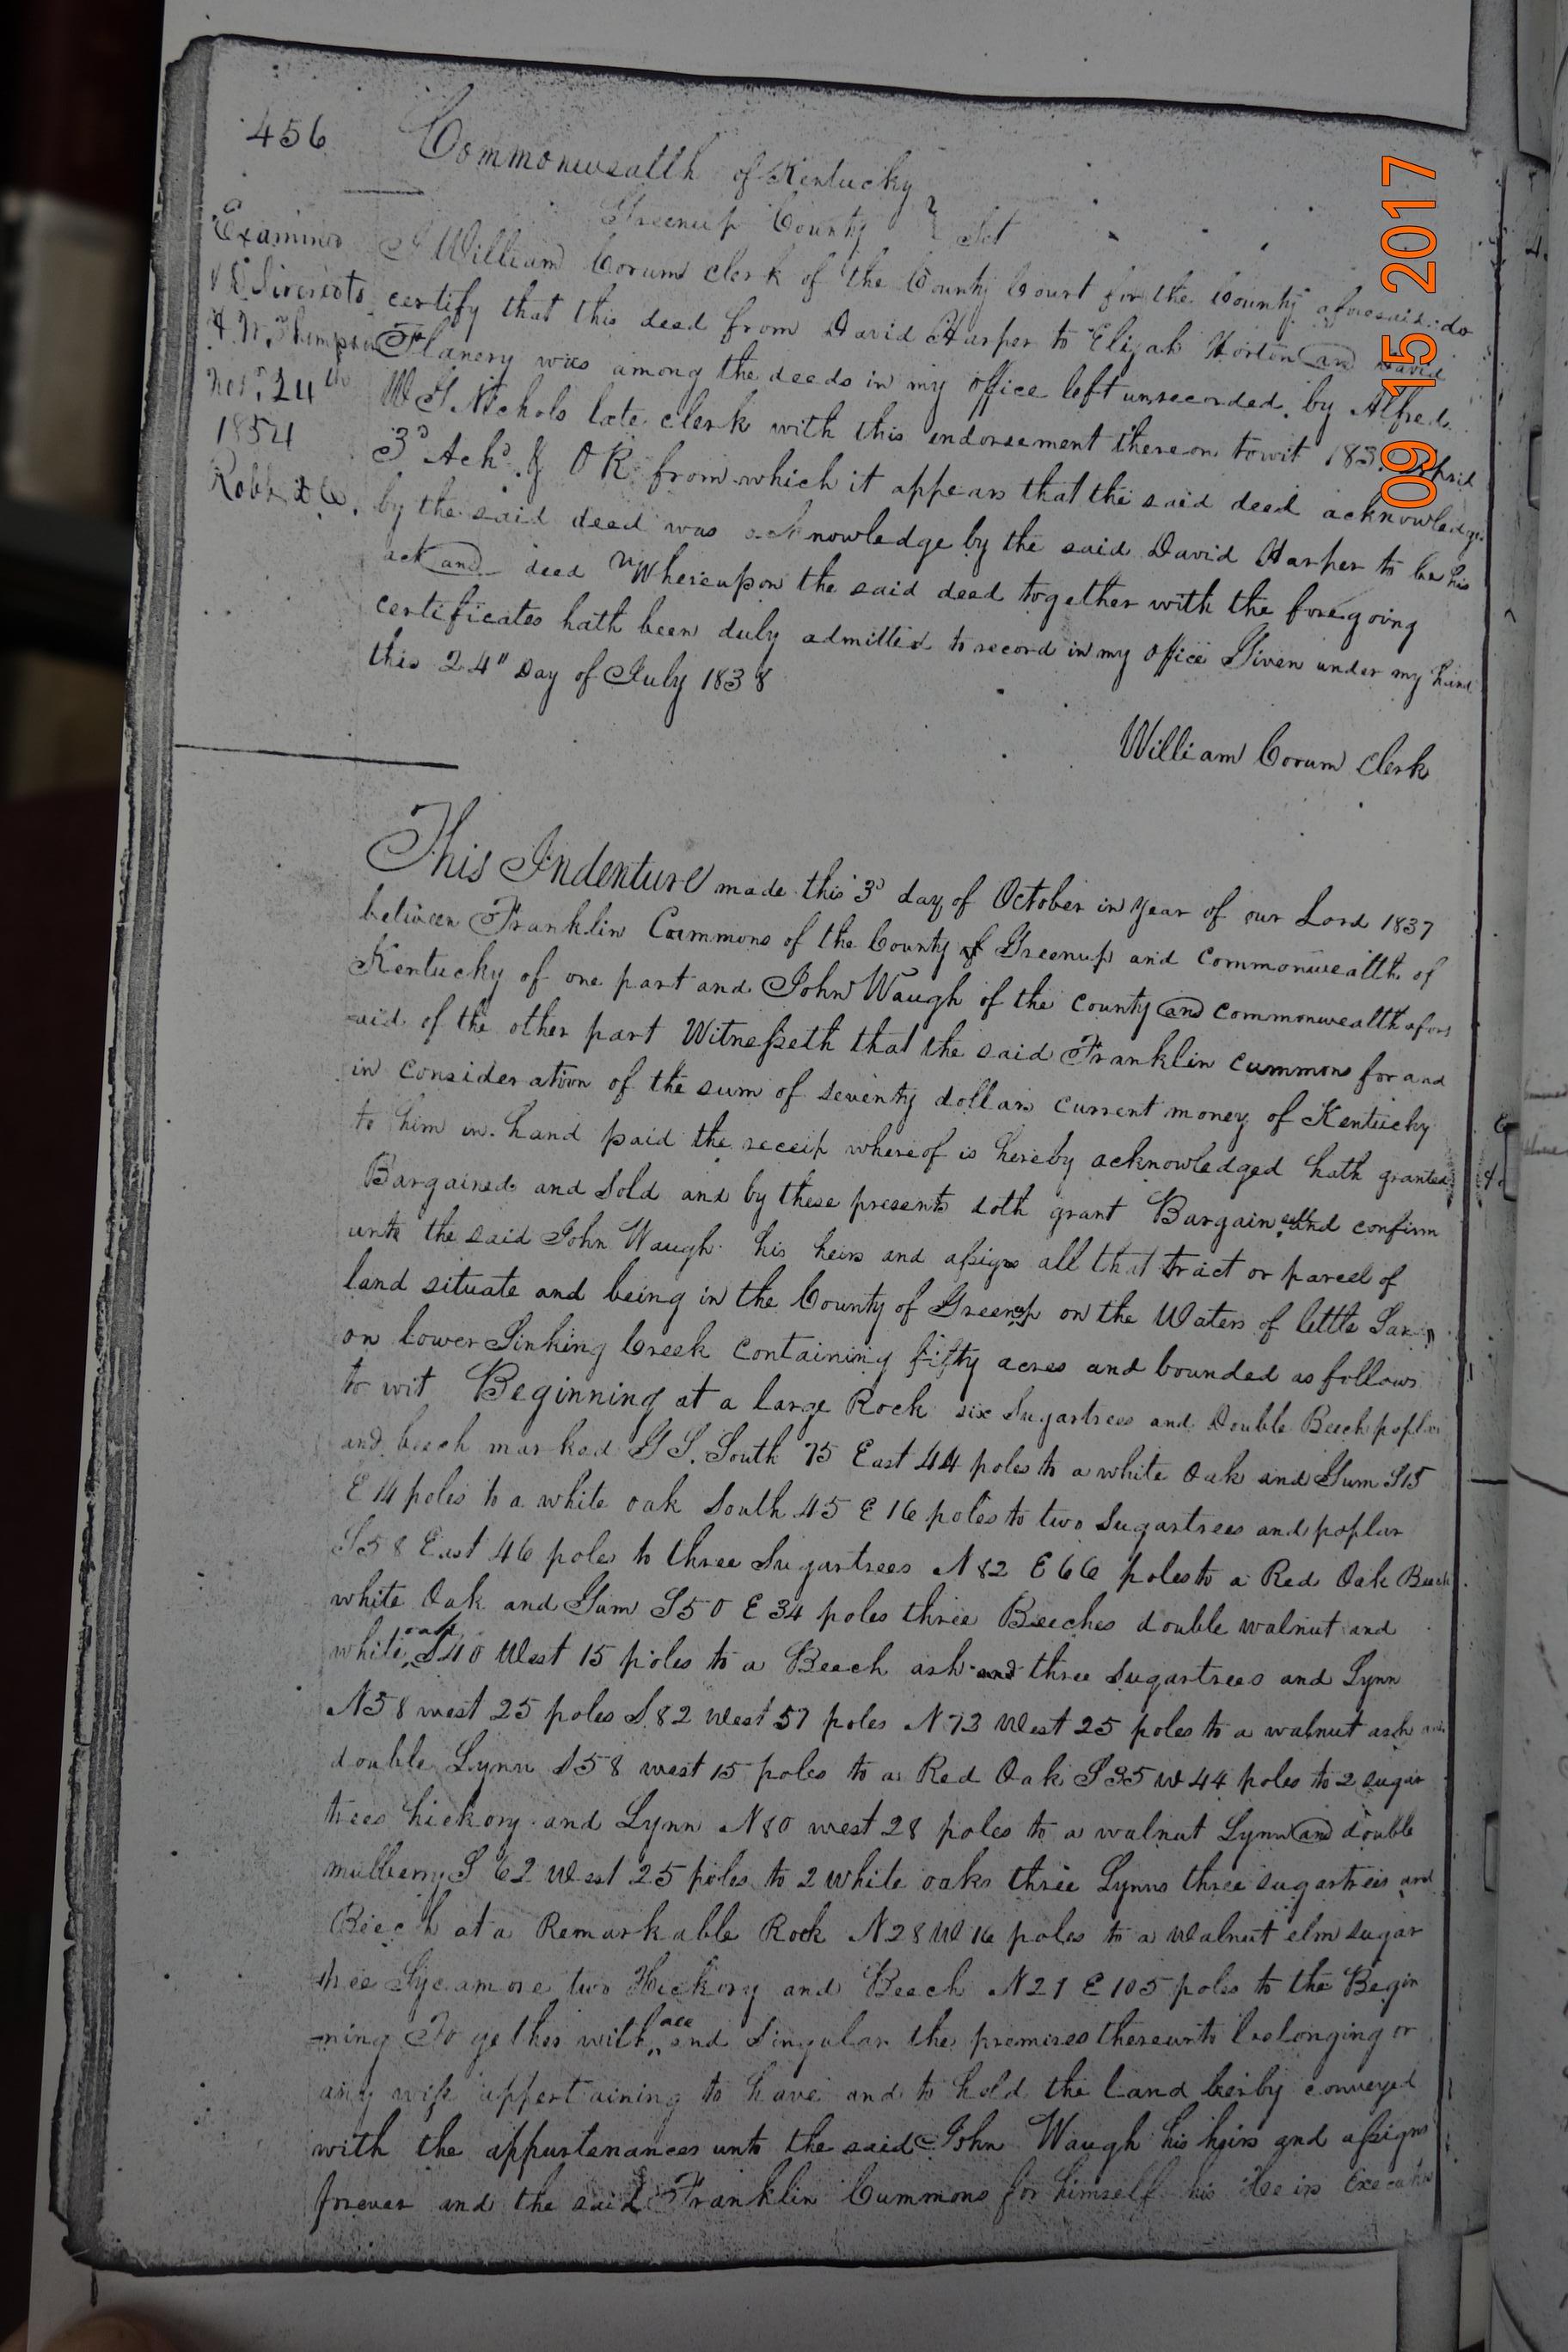 456
Commonwealth of Kentucky
Greenup County } Sct
Examined
I William Corum clerk of the County Court for the County aforesaid do
certify that this deed from David Harper to Elijah Horton and David
Flanery was among the deeds in my office left unrecorded by Alfred
Nov. 24th
W G Nichols late clerk with this endorsement thereon towit 183 April
1854
3d Ackd OK from which it appears that the said deed acknowledge
by the said deed was acknowledge by the said David Harper to be his
act and deed Whereupon the said deed together with the foregoing
certificates hath been duly admitted to record in my office Given under my hand
this 24" Day of July 1838
William Corum Clerk
This Indenture made this 3d day of October in year of our Lord 1837
between Franklin Cummons of the County of Greenup and Commonwealth of
Kentucky of one part and John Waugh of the county and commonwealth afores
aid of the other part Witnesseth that the said Franklin Cummons for and
in consideration of the sum of seventy dollars current money of Kentucky
to him in hand paid the receip whereof is hereby acknowledged hath granted
Bargained and Sold and by these presents doth grant Bargain sell and confirm
unto the said John Waugh his heirs and assigns all that tract or parcel of
land situate and being in the County of Greenup on the Waters of little San
on lower Sinking Creek containing fifty acres and bounded as follows
to wit Beginning at a large Rock six Sugartrees and Double Beech poplar
and beech marked G S. South 75 East 44 poles to a white Oak and Gum S15
E 14 poles to a white oak South 45 E 16 poles to two Sugartrees and poplar
S58 East 46 poles to three Sugartrees N 82 E 66 poles to a Red Oak Beech
white Oak and Gum S50 E 34 poles three Beeches double walnut and
white oak S40 West 15 poles to a Beech ash and three Sugartrees and Lynn
N58 west 25 poles S82 West 57 poles N73 West 25 poles to a walnut ash and
double Lynn S58 west 15 poles to a Red Oak S35 W 44 poles to 2 sugar
trees hickory and Lynn N80 west 28 poles to a walnut Lynn and double
mulberry S 62 West 25 poles to 2 white oaks three Lynns three sugartrees and
Beech at a Remarkable Rock N28 W 16 poles to a Walnut elm sugar
tree Sycamore two Hickory and Beech N21 E 105 poles to the Begin
ning Together with all and Singular the premises thereunto belonging or
any wise appertaining to have and to hold the land herby conveyed
with the appurtenances unto the said John Waugh his heirs and assigns
forever and the said Franklin Cummons for himself his Heirs Executors
09 15 2017